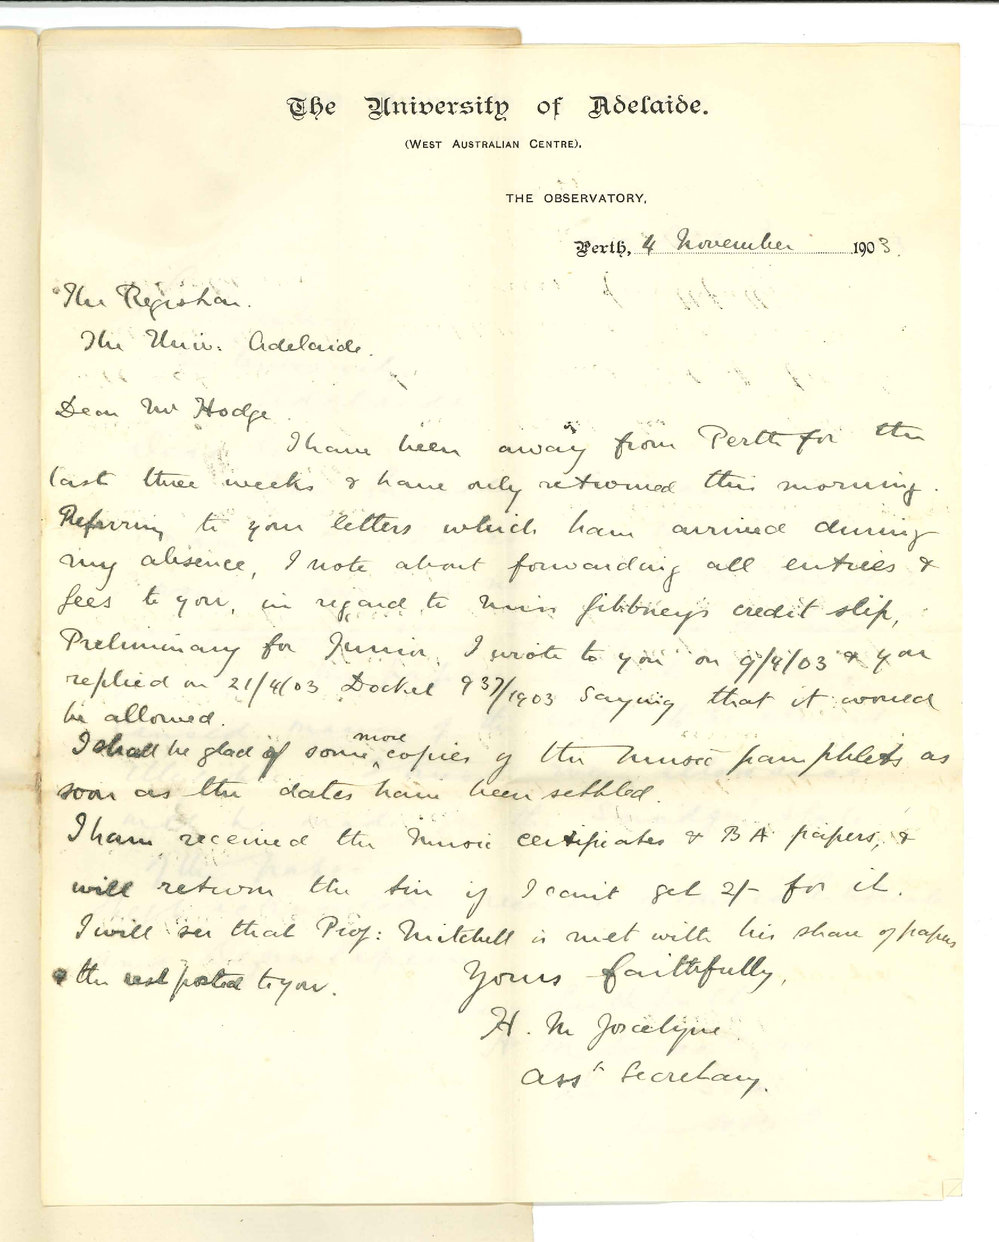 The University of Adelaide.
(West Australian Centre).
THE OBSERVATORY,
Perth, 4 November 1903.
The Registrar.
The Univ: Adelaide.
Dear Mr Hodge.
I have been away from Perth for the
last three weeks & have only returned this morning.
Referring to your letters which have arrived during
my absence, I note about forwarding all entries &
fees to you, in regard to Miss Gibbney's credit slip,
Preliminary for Junior, I wrote to you on 9/4/03 & you
replied on 21/4/03 Docket 937/1903 saying that it would
be allowed.
I shall be glad of some more copies of the music pamphlets as
soon as the dates have been settled.
I have received the music certificates & B A papers, &
will return the tin if I can't get 2/- for it.
I will see that Prof: Mitchell is met with his share of papers
& the rest posted to you.
Yours faithfully,
H. M Jocelyne
Asst Secretary.